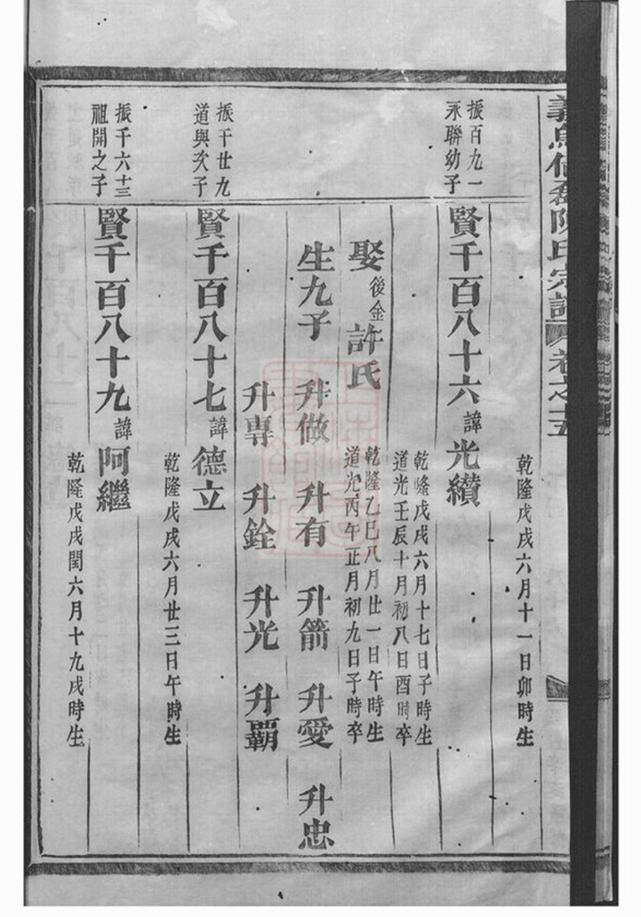 陳氏宗譜 卷之五
乾隆戊戌六月十一日卯時生
振百九一
永聯幼子
賢千百八十六諱光纘
乾隆戊戌六月十七日子時生
道光壬辰十月初八日酉時卒
娶後金許氏
乾隆乙巳八月廿一日午時生
道光丙午正月初九日子時卒
生九子 升做 升有 升箭 升愛 升忠
升專 升銓 升光 升霸
振千廿九
道與次子
賢千百八十七諱德立
乾隆戊戌六月廿三日午時生
振千六十三
祖開之子
賢千百八十九諱阿繼
乾隆戊戌閏六月十九戌時生